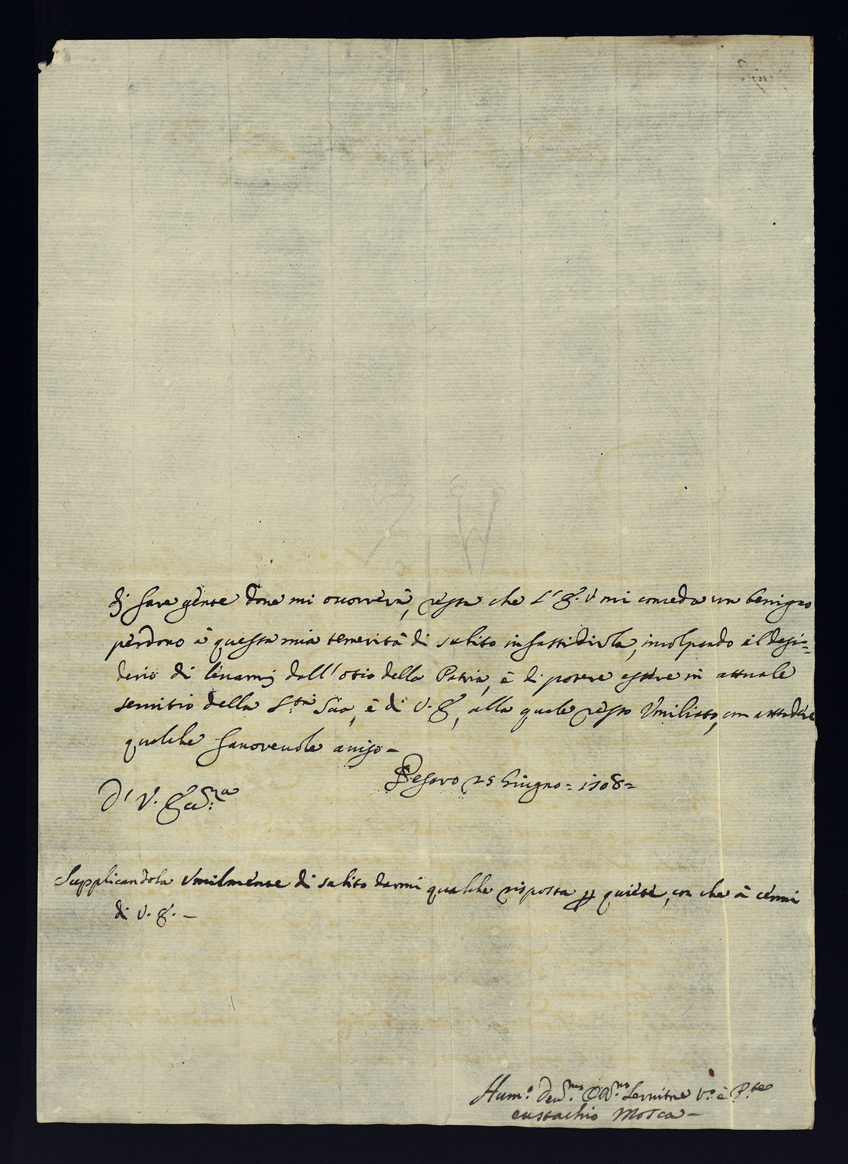 di fare gente dove mi ocorrerà, resta che L'E. V mi conceda un benigno
perdono à questa mia temerità di subito infastidirla, incolpando il desi=
derio di levarmi dall'otio della Patria, è di potere essere in attuale
servitio della S.tà Sua, è di V. E, alla quale resto Umiliato, con attendere
qualche favorevole aviso –
Pesaro 25 Giugno = 1708 =
D' V. Ecc.za
Supplicandola Umilmente di subito darmi qualche risposta p quiete, con che à cenni
di V. E. –
Hum.o Dev.mo Obb.mo Servitore V.o è P.te
eustachio Mosca –